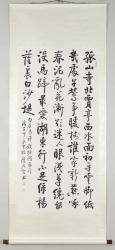 孤山寺北賈亭西水面初平雲腳低
幾處早鶯爭暖樹誰家新燕啄
春泥亂花漸欲迷人眼淺草纔能
沒馬蹄最愛湖東行不足綠楊
蔭裏白沙堤